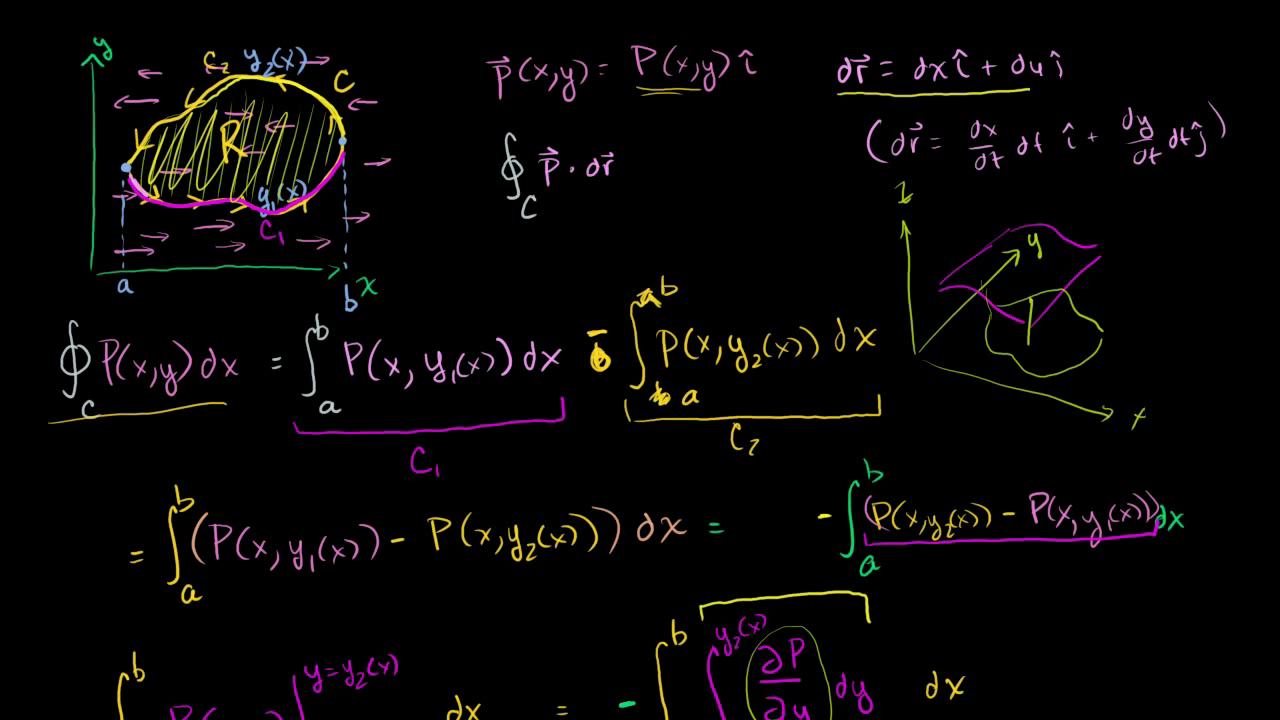 y
C₂ y₂(x) C
R
y₁(x)
C₁
a b x
p⃗(x,y) = P(x,y) î
dr⃗ = dx î + dy ĵ
(dr⃗ = dx/dt dt î + dy/dt dt ĵ)
∮_C p⃗ · dr⃗
z
y
x
∮_C P(x,y) dx = ∫_a^b P(x, y₁(x)) dx - ∫_a^b P(x, y₂(x)) dx
C₁ C₂
= ∫_a^b (P(x, y₁(x)) - P(x, y₂(x))) dx = - ∫_a^b (P(x, y₂(x)) - P(x, y₁(x))) dx
b y = y₂(x) dx = - ∫^b ∫^y₂(x) ∂P/∂y dy dx